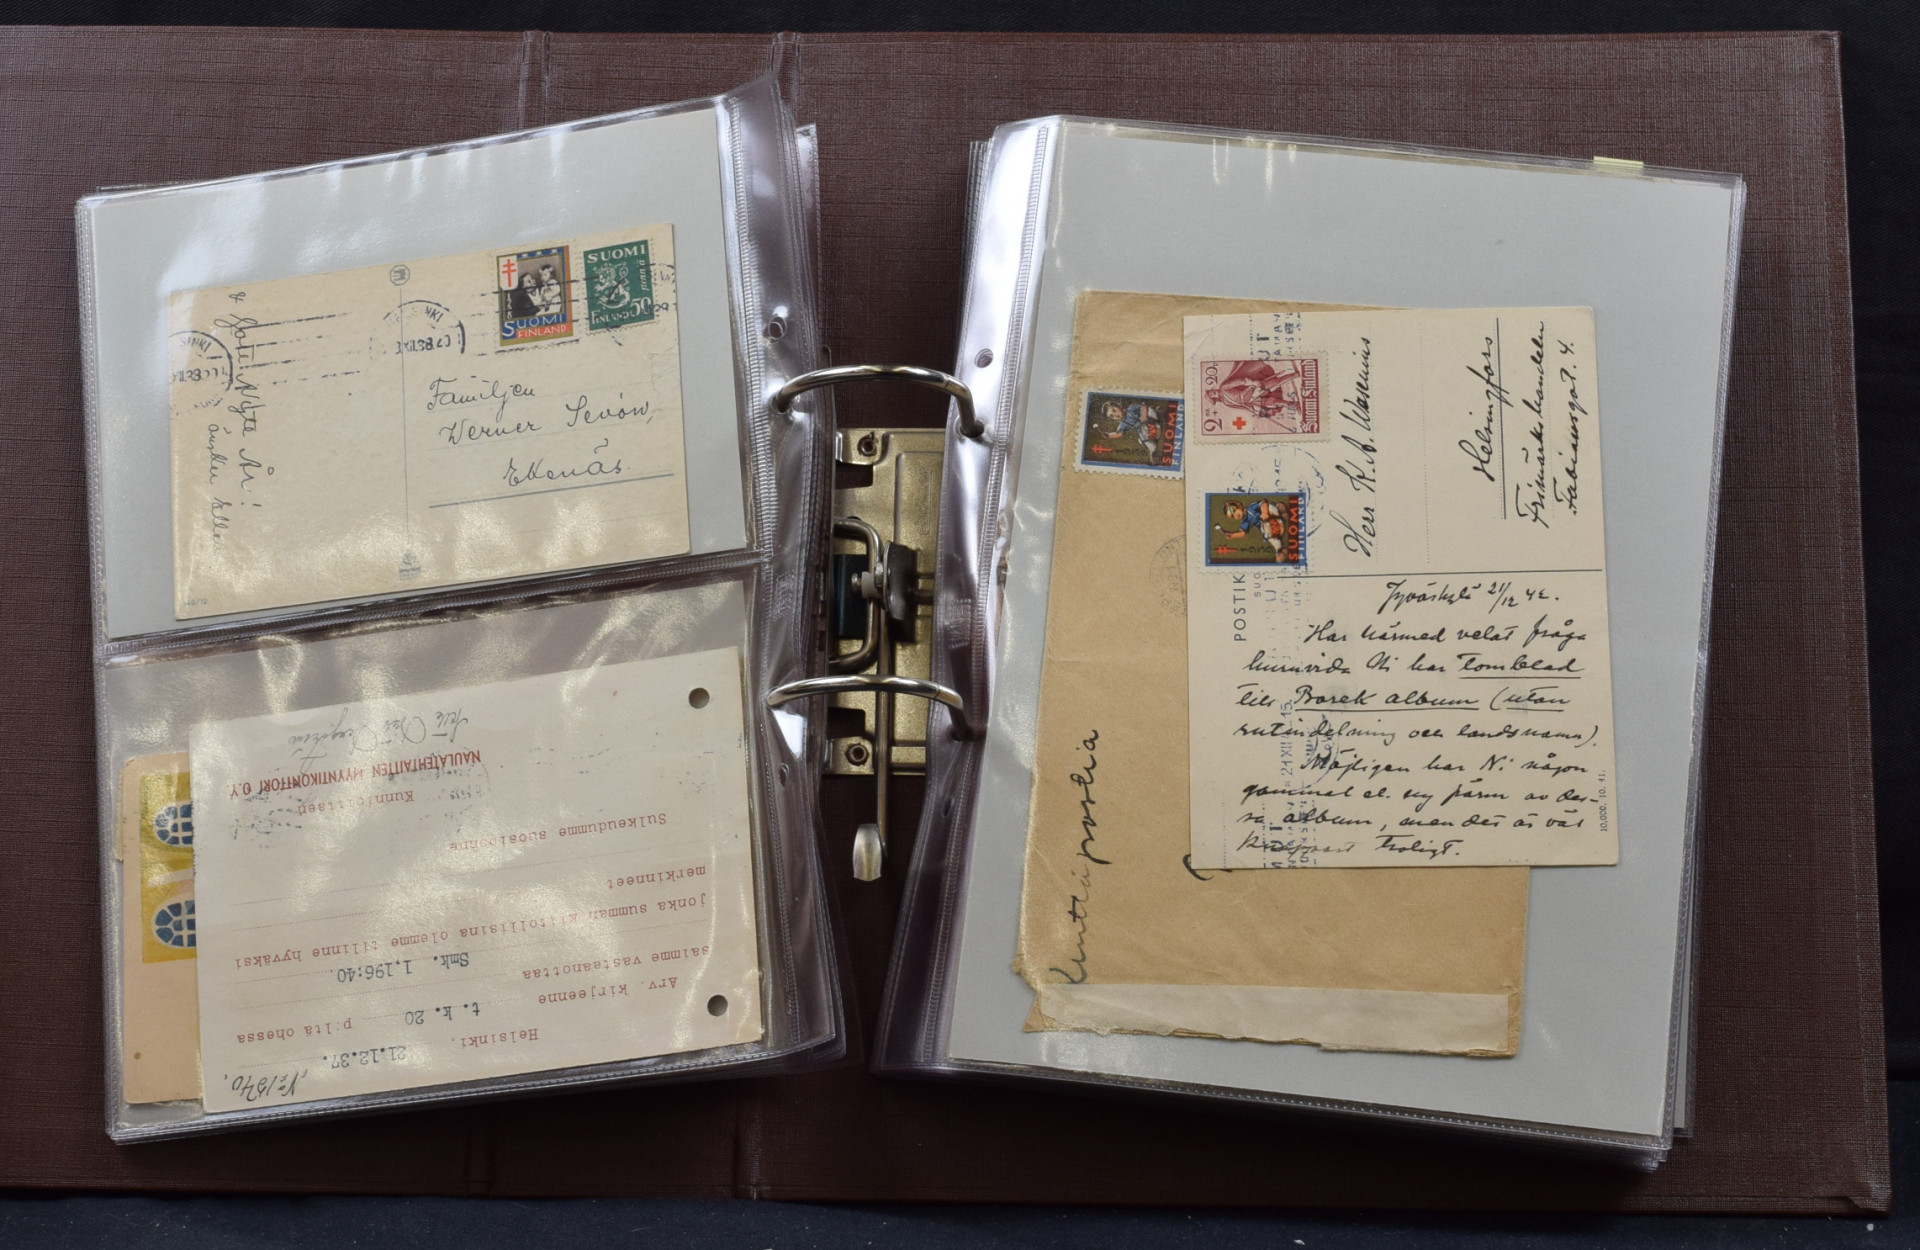 & Gott Nytt År!
önskar
SUOMI
FINLAND
SUOMI
FINLAND 50
Familjen
Werner Sevón,
Ekenäs.
No 1840.
21.12.37.
Helsinki,
Arv. kirjeenne t.k. 20 p:ltä ohessa
saimme vastaanottaa Smk. 1.196:40.
jonka summan kiitollisina olemme tilinne hyväksi
merkinneet
Sulkeudumme suosioonne
Kunnioittaen
NAULATEHTAITTEN MYYNTIKONTTORI O.Y.
SUOMI
FINLAND
Kenttäpostia
2 mk + 1:20
Suomi Finland
1939
SUOMI
FINLAND
POSTIK
Herr K. A. Warenius
Helsingfors
Frimärkshandeln
Fabiansgat. 4.
Jyväskylä 21/12 42.
Har härmed velat fråga
huruvida Ni har tomblad
till Borek album (utan
rutindelning och landsnamn).
Möjligen har Ni någon
gammal el. ny pärm av des-
sa album, men det är väl
knappast troligt.
10,000. 10. 41.